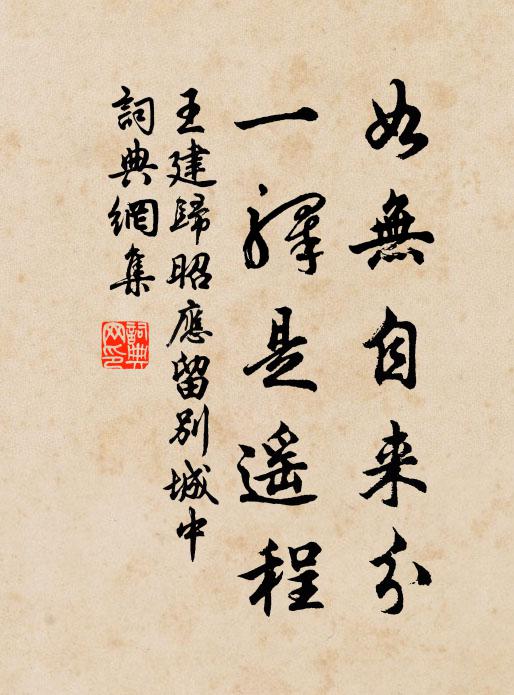 如無自来分
一驛是遥程
王建歸昭應留別城中
詞典網集
詞典網印